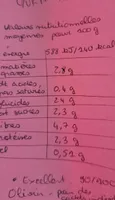 valeurs nutritionnelles
moyennes pour 100 g
énergie 588 kJ/140 kcal
matières grasses 2,8 g
acides gras saturés 0,4 g
glucides 24 g
sucres 2,3 g
fibres 4,7 g
protéines 2,3 g
sel 0,51 g
* Excellent 90/100
pour des